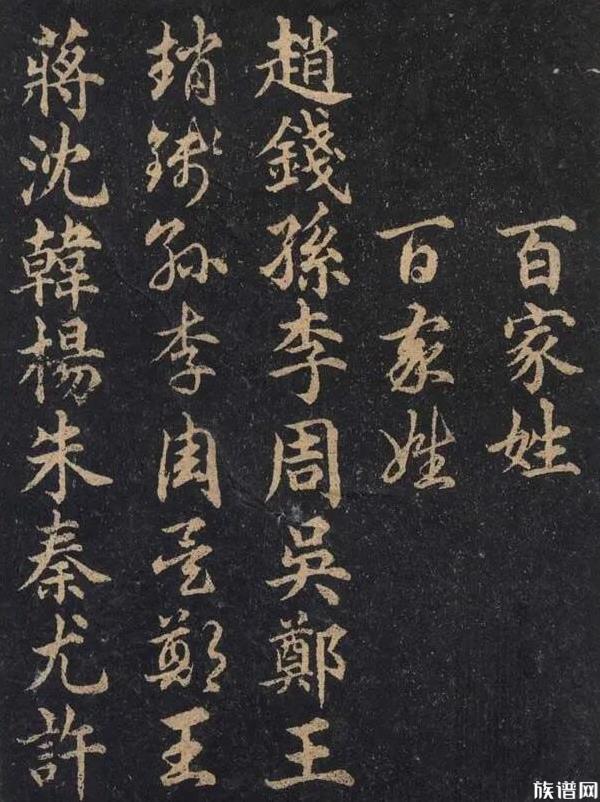 百家姓
百家姓
趙錢孫李周吳鄭王
趙錢孫李周吳鄭王
蔣沈韓楊朱秦尤許
族谱网